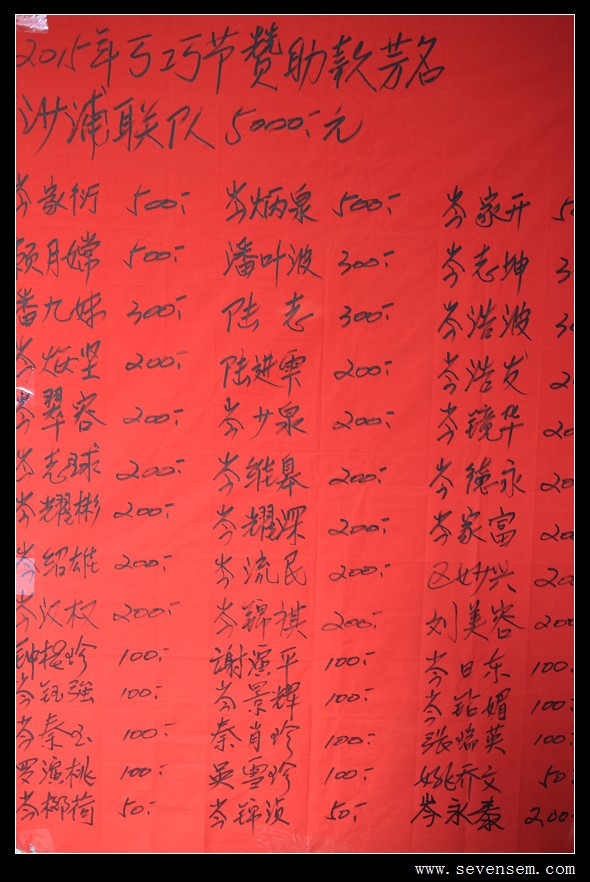 2015年乞巧节赞助款芳名
沙浦联队 5000元
岑家衍 500 岑炳泉 500 岑家开
顾月嫦 500 潘叶波 300 岑志坤
潘九妹 300 陆志 300 岑浩波
岑 坚 200 陆进 200 岑浩发
岑翠容 200 岑少泉 200 岑镜华
岑志球 200 岑维皋 200 岑德永
岑耀彬 200 岑耀深 200 岑家富
岑绍雄 200 岑流民 200 区妙兴
岑汉权 200 岑锦祺 200 刘美容 200
钟 珍 100 謝演平 100 岑日东 100
岑钰强 100 岑景輝 100 岑 媚 100
岑秦 100 秦肖珍 100 张瑞英 100
罗演桃 100 吴雪珍 100 姚乔文 50
岑柳荷 50 岑锦浈 50 岑永泰 200
www.sevensem.com